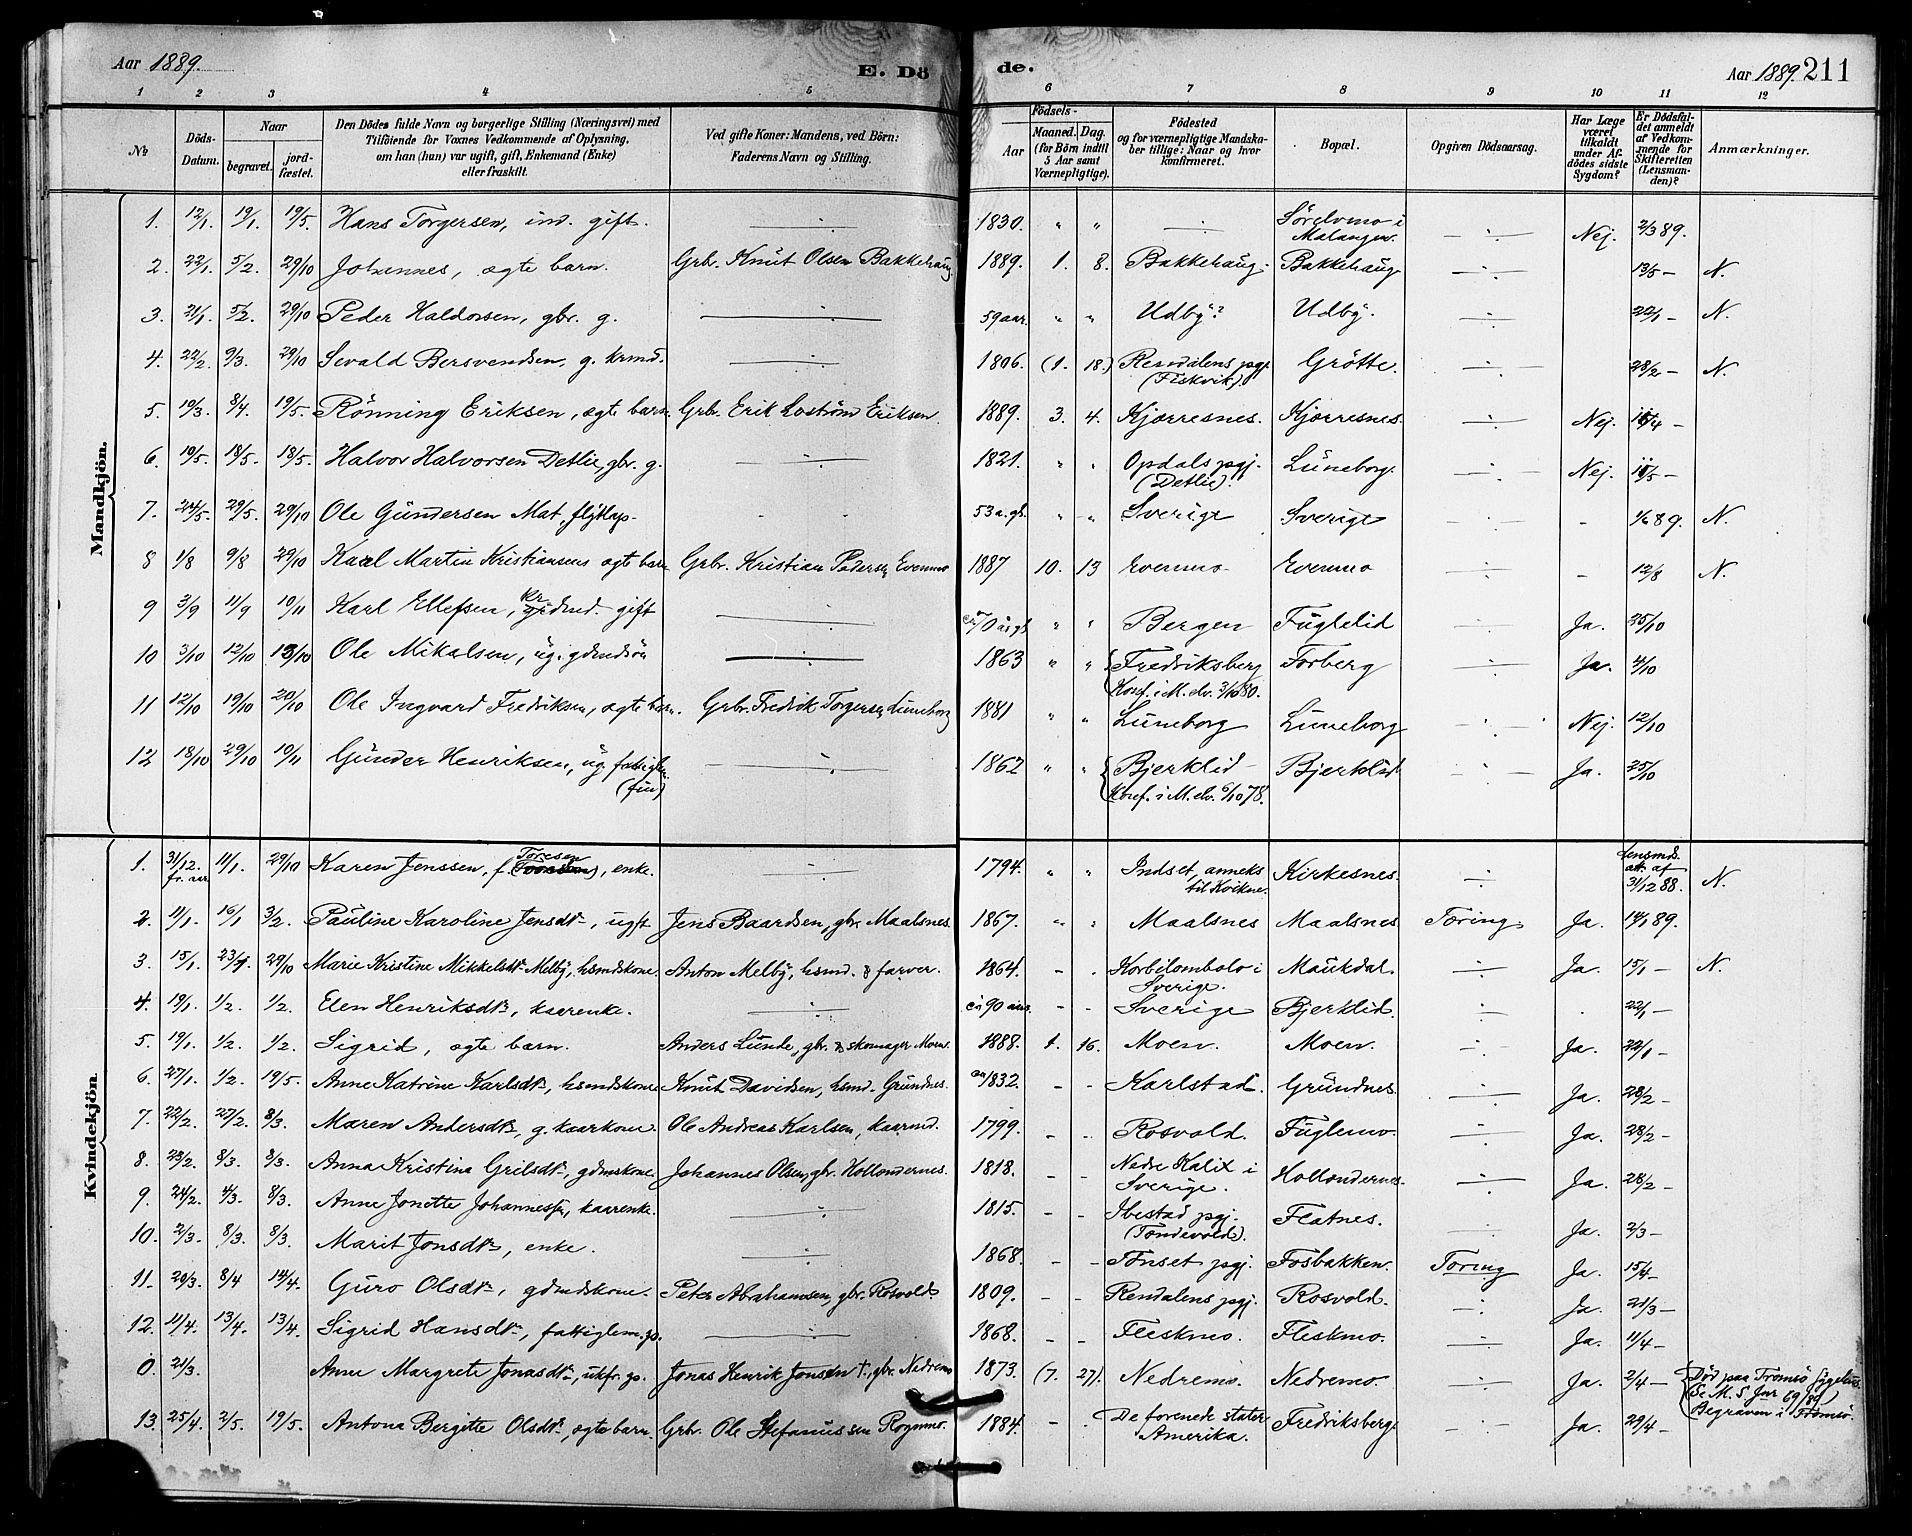 Aar 1889.
E. Dö
de.
Aar 1889. 211
1 2 3 4 5 6 7 8 9 10 11 12
No.
Döds-Datum.
Naar
begravet.
jord-fæstet.
Den Dödes fulde Navn og borgerlige Stilling (Næringsvei) med
Tilföiende for Voxnes Vedkommende af Oplysning,
om han (hun) var ugift, gift, Enkemand (Enke)
eller fraskilt.
Ved gifte Koner: Mandens, ved Börn:
Faderens Navn og Stilling.
Födsels-
Aar
Maaned. Dag.
(for Börn indtil
5 Aar samt
Værnepligtige).
Födested
og for værnepligtige Mandska-
ber tillige: Naar og hvor
konfirmeret.
Bopæl.
Opgiven Dödsaarsag.
Har Læge
været
tilkaldt
under Af-
dödes sidste
Sygdom?
Er Dödsfal-
det anmeldt
af Vedkom-
mende for
Skifteretten
(Lensman-
den)?
Anmærkninger.
Mandkjön.
1. 12/1 19/1. 19/5. Hans Torgersen, ind. gift. 1830. " " Sörelvmo i Malangen. Nej. 2/3 89.
2. 22/1 5/2. 29/10 Johannes, ægte barn. Grb. Knut Olsen Bakkehaug 1889. 1. 8. Bakkehaug. Bakkehaug. 13/5 — N.
3. 21/1. 5/2. 29/10 Peder Haldorsen, gbr. g. 59 aar. " " Udby? Udby. 22/1 — N.
4. 22/2. 9/3. 29/10 Sevald Bersvendsen, g. krmd. 1806. (1. 18.) Rendalens pgj. (Fiskvik) Grötte. 28/2 — N.
5. 19/3. 8/4. 19/5. Rönning Eriksen, ægte barn. Grb. Erik Loström Eriksen. 1889. 3. 4. Kjærresnes. Kjærresnes. Nej. /4 —
6. 10/5. 18/5. 18/5. Halvor Halvorsen Detlie, gbr. g. 1821. " " Opdals pgj. (Detlie). Luneborg. Nej. /5 —
7. 24/5. 29/5. 29/10 Ole Gundersen Mat, flytlap. 53 a. gl. " " Sverige Sverige - 1/6 89. N.
8 1/8 9/8 29/10 Karl Martin Kristiansens ægte barn Grbr. Kristian Peders. Evenmo 1887 10. 13 Evenmo Evenmo - 12/8 N.
9 3/9 11/9 10/11 Karl Ellefsen, gift ca 70 år gl. " " Bergen Fuglelid Ja. 25/10
10 3/10 12/10 13/10 Ole Mikalsen, ug. gdmdsön 1863 " " Fredriksberg Konf. i M. elv. 3/10 80. Forberg Ja. 4/10
11 12/10 19/10 20/10 Ole Ingvard Fredriksen, ægte barn. Grbr. Fredrik Torgersen Luneborg 1881 " " Luneborg Luneborg Nej. 12/10
12 18/10 29/10 10/11 Gunder Henriksen, ug. fattiglm. (fin) 1862 " " Bjerklid Konf. i M. elv. 6/10 78. Bjerklid Ja. 25/10
Kvindekjön
1. 31/12. fr. aar 11/1. 29/10 Karen Jenssen, f. Toresen, enke. 1794. " " Indset, anneks til Kvikne. Kirkesnes. Lensmds. att. af 31/12 88. N.
2. 11/1. 16/1 3/2. Pauline Karoline Jensdtr, ugft Jens Baardsen, gbr. Maalsnes. 1867. " " Maalsnes Maalsnes Tæring. Ja. 14/1 89.
3. 15/1. 23/1. 29/10 Marie Kristine Mikkelsdtr Melby, hsmdskone. Anton Melby, hsmd. & farver. 1864. - - Korbilombolo i Sverige. Maukdal. Ja. 15/1 — N.
4. 19/1. 1/2. 1/2. Elen Henriksdtr, kaarenke. ca 90 aar. - - Sverige Bjerklid. 22/1 —
5. 19/1. 1/2. 1/2. Sigrid, ægte barn. Anders Lunde, gbr. & skomager Moen. 1888. 1. 16. Moen. Moen. Ja. 22/1 —
6. 27/1. 1/2. 19/5. Anne Katrine Karlsdtr, hsmdskone Knut Davidsen, hsmd. Grundnes. ca 1832. - - Karlstad. Grundnes. Ja. 28/2 —
7. 22/2. 27/2. 8/3. Maren Andersdtr, g. kaarkone. Ole Andreas Karlsen, kaarmd. 1799. - - Rosvold. Fuglemo. Ja. 28/2 —
8. 23/2. 8/3. 8/3. Anna Kristina Grilsdtr, gdmskone Johannes Olsen, gbr. Hollendernes. 1818. - - Nedre Kalix i Sverige. Hollendernes. Ja. 28/2 —
9. 24/2. 4/3. 8/3. Anne Jonette Johannesdtr, kaarenke. 1815. - - Ibestad pgj. (Tondevold). Flatnes. Ja. 2/3 —
10. 2/3. 8/3. 8/3. Marit Jonsdtr, enke. 1868. - - Tönset pgj. Fosbakken. Tæring Ja. 15/4 —
11. 20/3. 8/4 14/4. Guro Olsdtr, gdmdskone. Peter Abrahamsen, gbr. Rosvold 1809. - - Rendalens pgj. Rosvold. Ja. 21/3 —
12. 11/4. 13/4. 13/4. Sigrid Hansdtr, fattiglem. gs. 1868. - - Fleskmo. Fleskmo. Ja. 11/4 —
0. 21/3. Anne Margrete Jonasdtr, ukfr. gs. Jonas Henrik Jonsen †, gbr. Nedremo 1873. (7. 27). Nedremo. Nedremo. Ja. 2/4 — Död paa Tromsö Sygehus. Se M. S. Jnr 69/89. Begraven i Tromsö.
13. 25/4. 2/5. 19/5. Antona Bergitte Olsdtr, ægte barn. Grb. Ole Stefanussen Rognmo. 1884. - - De forenede stater Amerika. Fredriksberg Ja. 29/4 —